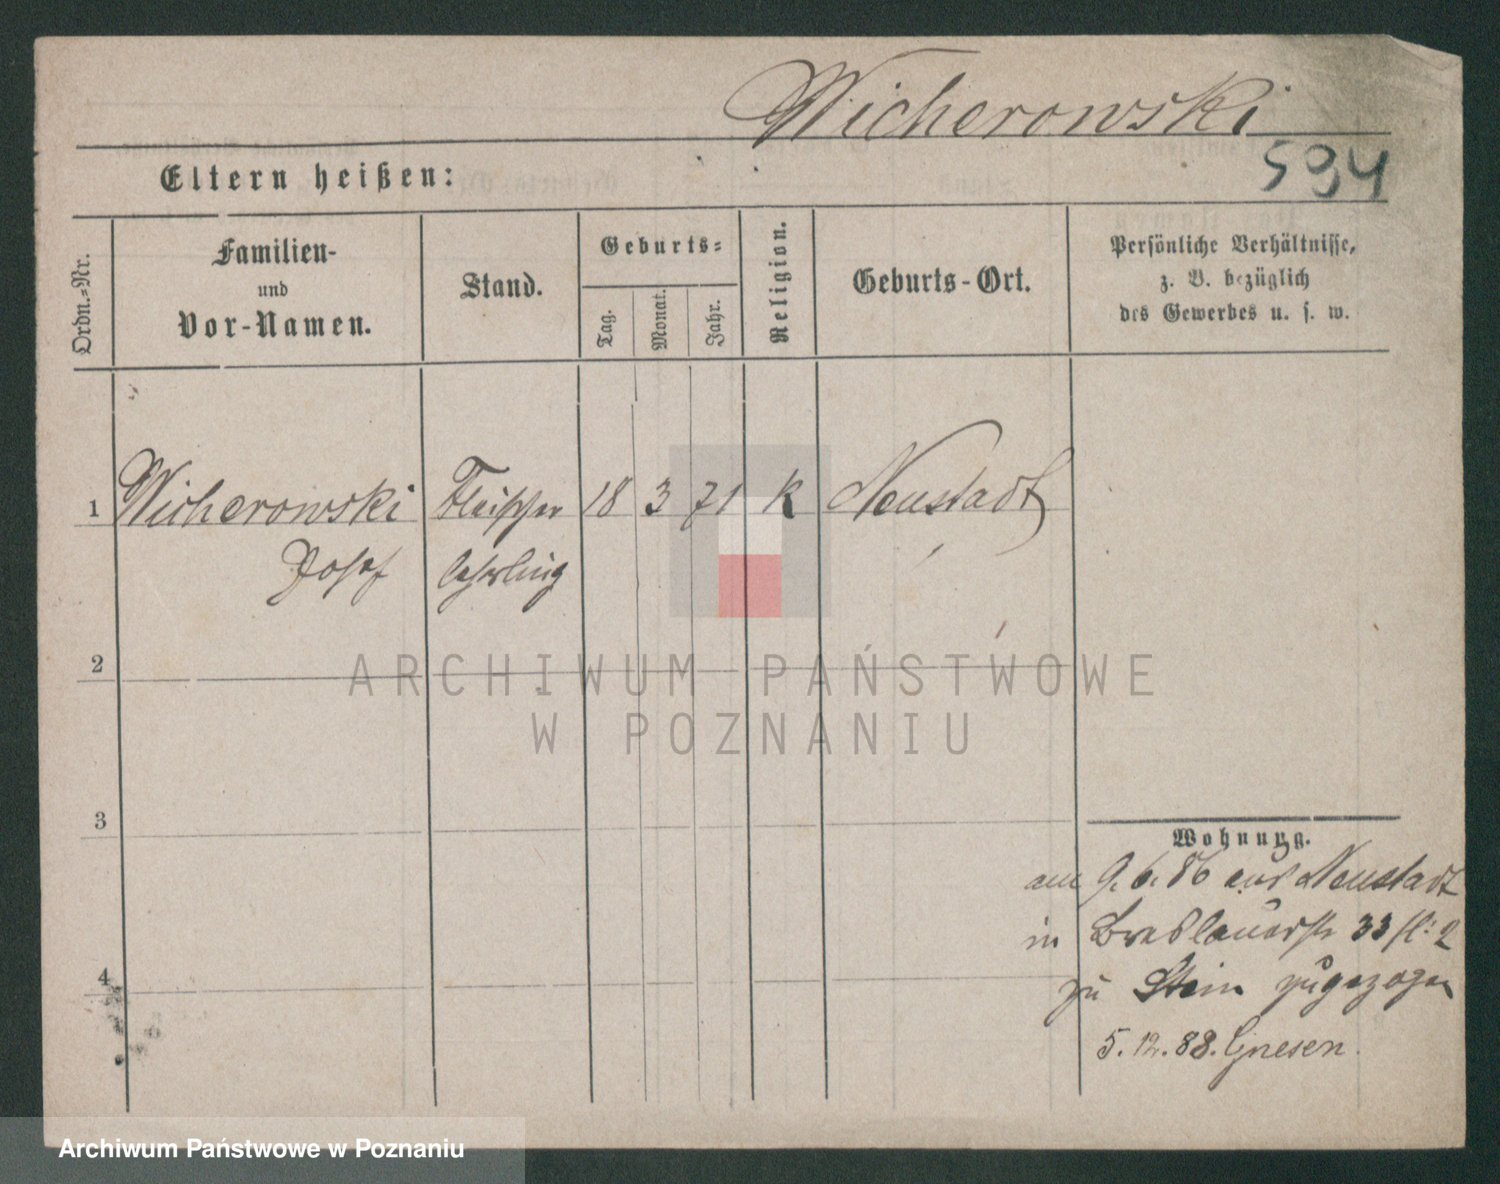 Wicherowski
594
Eltern heißen:
Ordn.-Nr.
Familien-
und
Vor-Namen.
Stand.
Geburts-
Tag.
Monat.
Jahr.
Religion.
Geburts-Ort.
Persönliche Verhältnisse,
z. B. bezüglich
des Gewerbes u. s. w.
1 Wicherowski Fleischer 18 3 71 k Neustadt
Josef lehrling
2
3
4
Wohnung.
am 9. 6. 86 aus Neustadt
in Breslauerstr 33 2
zu Stein zugezogen
5. 12. 88. Gnesen.
ARCHIWUM PAŃSTWOWE
W POZNANIU
Archiwum Państwowe w Poznaniu